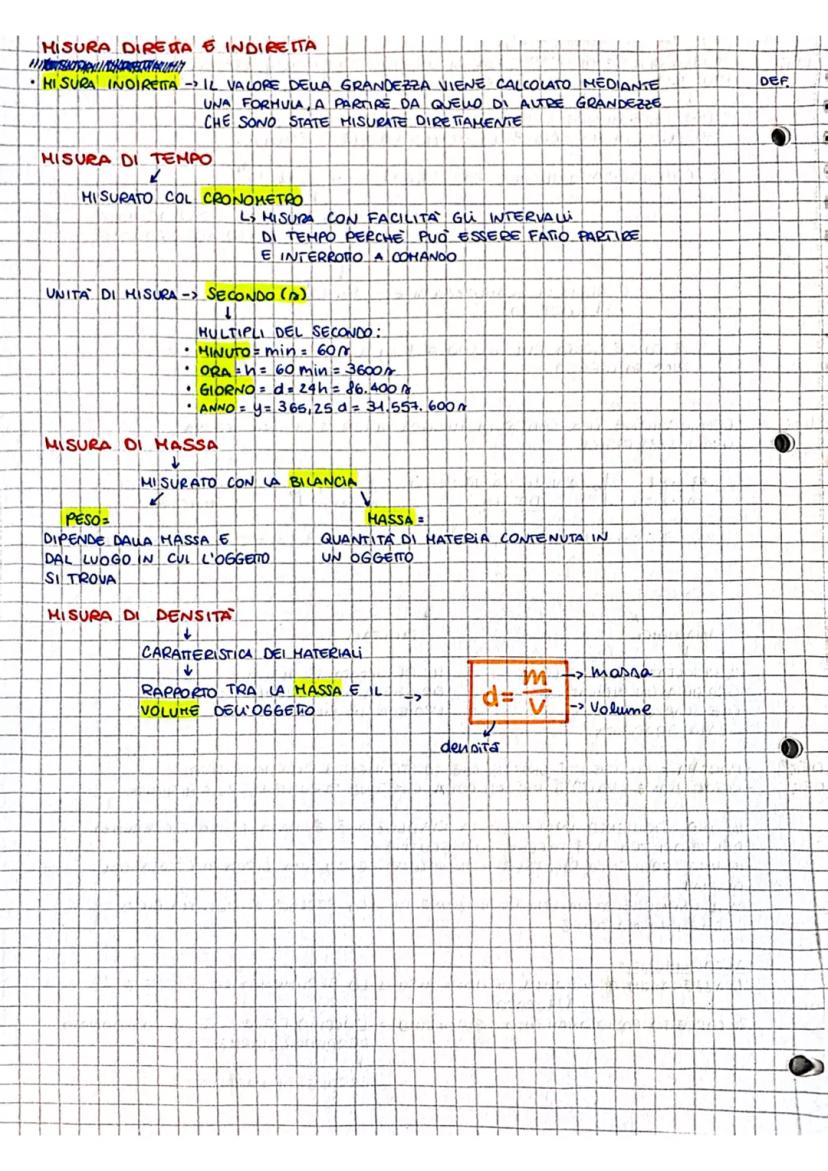 MISURA DIRETTA E INDIRETTA
• MISURA INDIRETTA -> IL VALORE DELLA GRANDEZZA VIENE CALCOLATO MEDIANTE DEF.
UNA FORMULA, A PARTIRE DA QUELLO DI ALTRE GRANDEZZE
CHE SONO STATE MISURATE DIRETTAMENTE
MISURA DI TEMPO
↓
MISURATO COL CRONOMETRO
↳ MISURA CON FACILITÀ GLI INTERVALLI
DI TEMPO PERCHÈ PUÒ ESSERE FATTO PARTIRE
E INTERROTTO A COMANDO
UNITÀ DI MISURA -> SECONDO (s)
↓
MULTIPLI DEL SECONDO:
• MINUTO = min = 60 s
• ORA = h = 60 min = 3600 s
• GIORNO = d = 24h = 86.400 s
• ANNO = y = 365,25 d = 31.557.600 s
MISURA DI MASSA
↓
MISURATO CON LA BILANCIA
↙ ↘
PESO = MASSA =
DIPENDE DALLA MASSA E QUANTITÀ DI MATERIA CONTENUTA IN
DAL LUOGO IN CUI L'OGGETTO UN OGGETTO
SI TROVA
MISURA DI DENSITÀ
↓
CARATTERISTICA DEI MATERIALI
↓
RAPPORTO TRA LA MASSA E IL -> d = m/V -> massa
VOLUME DELL'OGGETTO -> Volume
densità